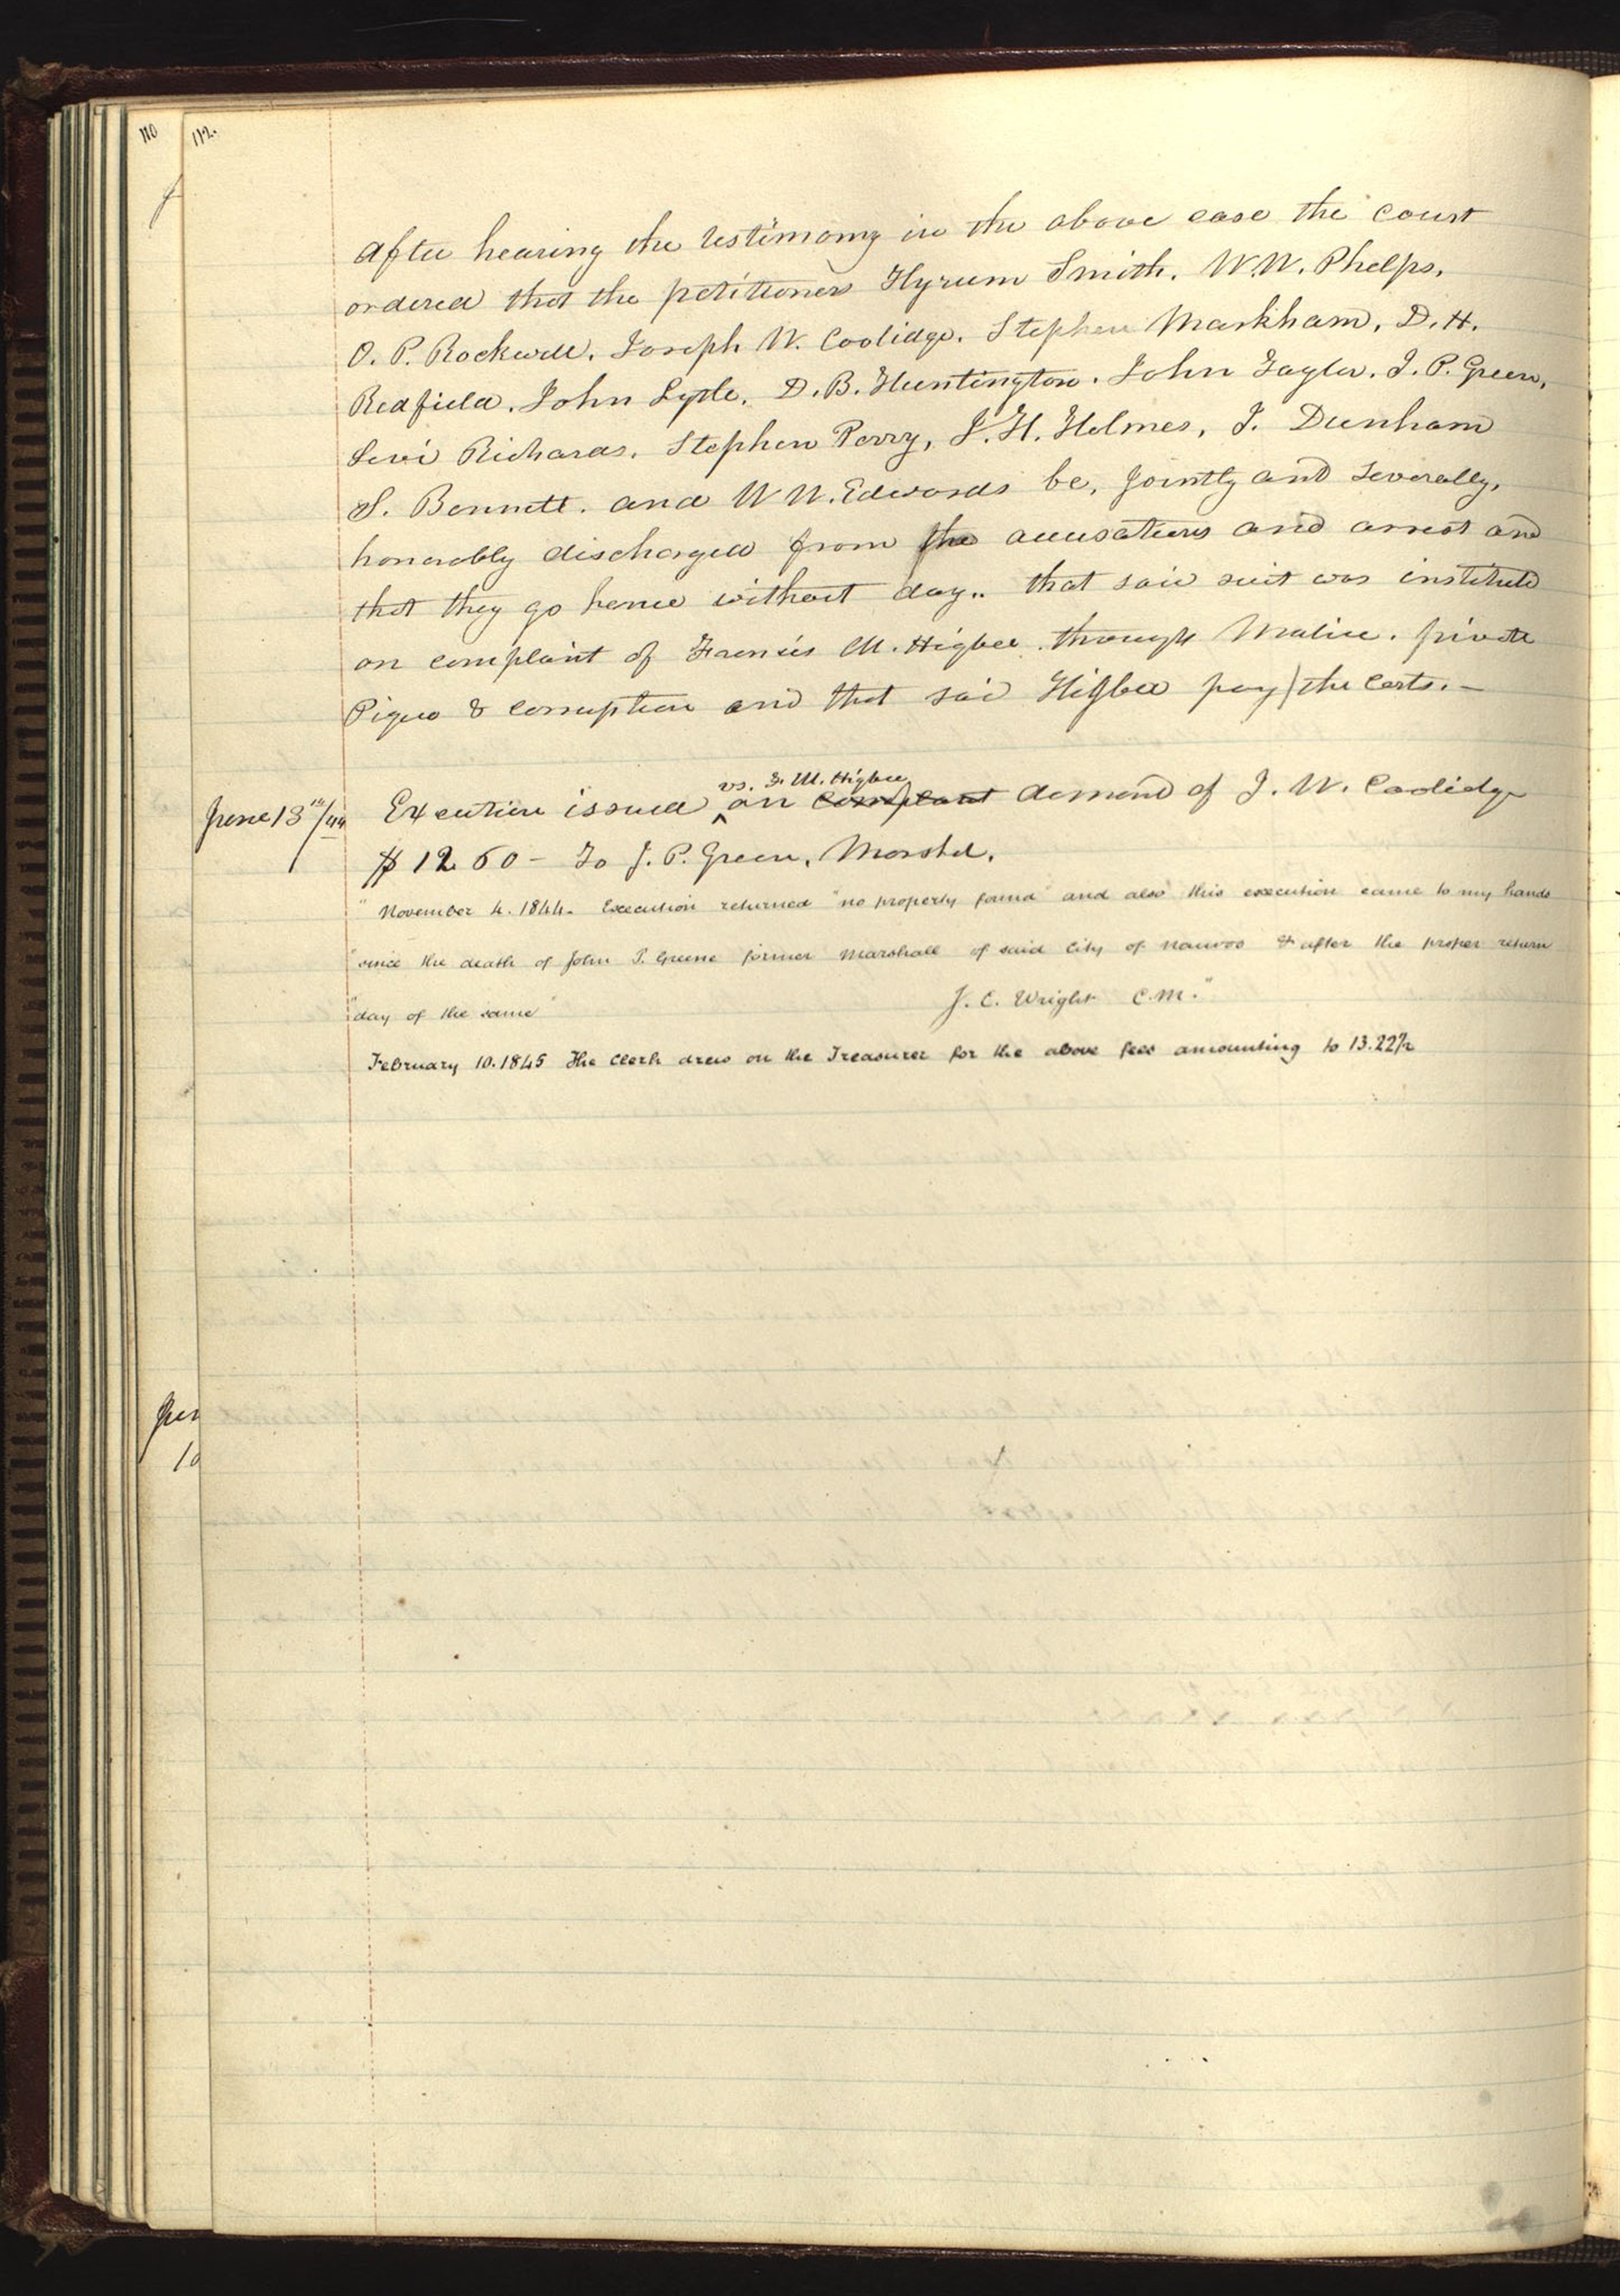 110
112.
After hearing the testimony in the above case the court
ordered that the petitioners Hyrum Smith. W.W. Phelps.
O. P. Rockwell. Joseph W. Coolidge. Stephen Markham. D. H.
Redfield. John Lytle. D. B. Huntington. John Taylor. J. P. Green,
Levi Richards. Stephen Perry, J. H. Holmes, J. Dunham
S. Bennett. and W W. Edwards be, jointly and severally,
honorably discharged from the accusations and arrest and
that they go hence without day.. that said suit was instituted
on complaint of Francis M. Higbee. through Malice. private
Pique & corruption and that said Higbee pay the Costs. –
vs. F. M. Higbee
June 13th/44 Execution issued on complaint demand of J. W. Coolidge
$12 60 – To J. P. Green, Marshal.
" November 4. 1844. Execution returned "no property found" and also "this execution came to my hands
"since the death of John P. Greene former Marshall of said City of Nauvoo & after the proper return
"day of the same"
J. C. Wright C.M."
February 10. 1845 The Clerk drew on the Treasurer for the above fees amounting to 13.22½
Jun
10